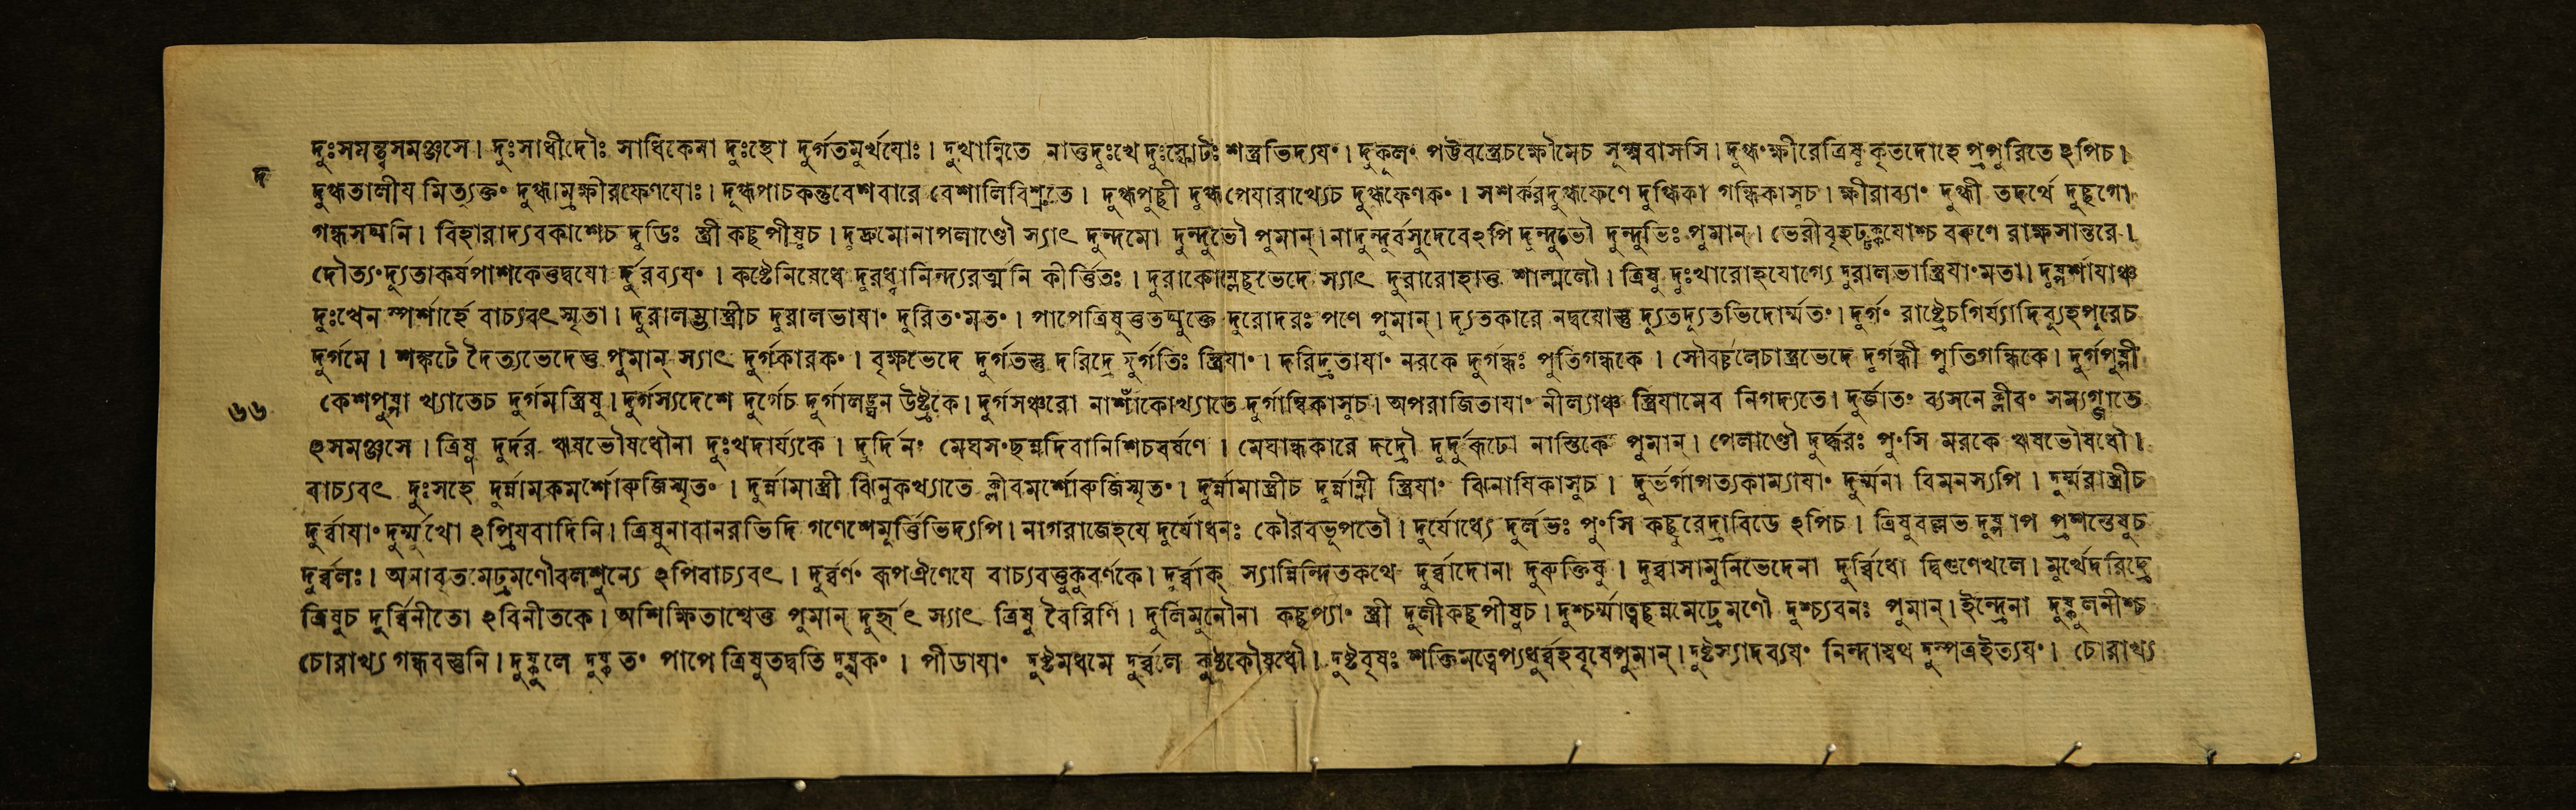 দুঃসমন্ত্বসমঞ্জসে। দুঃসাধীদৌঃ সাধিকেনা দুঃস্থো দুর্গতমুর্খযোঃ। দুখান্বিতে নাত্তদুঃখে দুঃস্ফোটঃ শস্ত্রভিদ্যয॰। দুকূল॰ পট্টবস্ত্রেচক্ষৌমেচ সূক্ষ্মবাসসি। দুগ্ধ॰ক্ষীরেত্রিষু কৃতদোহে প্রপুরিতে ঽপিচ।
দ
দুগ্ধতালীয মিত্যুক্ত॰ দুগ্ধাম্রক্ষীরফেণযোঃ। দুগ্ধপাচকন্তুবেশবারে বেশালিবিশ্রুতে। দুগ্ধপুচ্ছী দুগ্ধপেযারাখ্যেচ দুগ্ধফেণক॰। সশর্করদুগ্ধফেণে দুগ্ধিকা গন্ধিকাসুচ। ক্ষীরাব্যা॰ দুগ্ধী তদর্থে দুচ্ছগো
গন্ধসদ্মনি। বিহারাদ্যবকাশেচ দুডিঃ স্ত্রী কচ্ছপীষুচ। দুদ্রুমোনাপলাণ্ডৌ স্যাৎ দুন্দমো দুন্দুভৌ পুমান্। নাদুন্দুর্বসুদেবেঽপি দুন্দুভৌ দুন্দুভিঃ পুমান্। ভেরীবৃহঢ্ঢক্কযোশ্চ বরুণে রাক্ষসান্তরে।
দৌত্য॰দ্যুতাকর্ষপাশকেত্তদ্বযো র্দুরব্যয॰। কষ্টেনিষেধে দুরধ্বানিন্দ্যরর্ত্মনি কীর্ত্তিতঃ। দুরাকোম্লেচ্ছভেদে স্যাৎ দুরারোহাত্ত শাল্মলৌ। ত্রিষু দুঃখারোহযোগ্যে দুরালভাস্ত্রিযা॰মতা। দুস্পর্শাযাঞ্চ
দুঃখেন স্পর্শার্হে বাচ্যবৎ স্মৃতা। দুরালম্ভাস্ত্রীচ দুরালভাযা॰ দুরিত॰মত॰। পাপেত্রিষুত্ততদ্যুক্তে দুরোদরঃ পণে পুমান্। দ্যূতকারে নদ্বয়োস্তু দ্যুতদ্যুতভিদোর্ম্মত॰। দুর্গ॰ রাষ্ট্রেচগির্য্যাদিব্যুহপুরেচ
দুর্গমে। শঙ্কটে দৈত্যভেদেত্ত পুমান্ স্যাৎ দুর্গকারক॰। বৃক্ষভেদে দুর্গতস্তু দরিদ্রে দুর্গতিঃ স্ত্রিযা॰। দরিদ্রতাযা॰ নরকে দুর্গন্ধঃ পুতিগন্ধকে। সৌবর্চ্চলেচাম্রভেদে দুর্গন্ধী পুতিগন্ধিকে। দুর্গপুষ্পী
৬৬
কেশপুষ্পা খ্যাতেচ দুর্গমস্ত্রিষু। দুর্গস্যদেশে দুর্গেচ দুর্গালঙ্ঘন উষ্ট্রকে। দুর্গসঞ্চরো নাশাঁকোখ্যাতে দুর্গাম্বিকাসুচ। অপরাজিতাযা॰ নীল্যাঞ্চ স্ত্রিযামেব নিগদ্যতে। দুর্জ্জাত॰ ব্যসনে ক্লীব॰ সম্যগ্জাতে
ঽসমঞ্জসে। ত্রিষু দুর্দর ঋষভৌষধৌনা দুঃখদার্য্যকে। দুর্দিন॰ মেঘস॰ছন্নদিবানিশিচবর্ষণে। মেঘান্ধকারে দর্দ্রৌ দুদুর্রূঢো নাস্তিকে পুমান্। পেলাণ্ডৌ দুর্দ্ধরঃ পু॰সি মরকে ঋষভৌষধৌ।
বাচ্যবৎ দুঃসহে দুর্ন্নামকমর্শোরুজিস্মৃত॰। দুর্ন্নামাস্ত্রী ঝিনুকখ্যাতে ক্লীবমর্শোরুজিস্মৃত॰। দুর্ন্নামাস্ত্রীচ দুর্ন্নাম্নী স্ত্রিযা॰ ঝিনাযিকাসুচ। দুর্ভর্গাপত্যকাম্যাযা॰ দুর্ম্মনা বিমনস্যপি। দুর্ম্মরাস্ত্রীচ
দুর্ব্বাযা॰ দুর্ম্মুখো ঽপ্রিযবাদিনি। ত্রিষুনাবানরভিদি গণেশেমূর্ত্তিভিদ্যপি। নাগরাজেহযে দুর্যোধনঃ কৌরবভূপতৌ। দুর্যোধ্যে দুর্লভঃ পু॰সি কচ্ছুরেদ্রাবিডে ঽপিচ। ত্রিষুবল্লভ দুষ্প্রাপ প্রশস্তেষুচ
দুর্ব্বলঃ। অনাবৃতমেঢ্রমণৌবলশুন্যে ঽপিবাচ্যবৎ। দুর্ব্বর্ণ॰ রূপঐণেযে বাচ্যবত্তুকুবর্ণকে। দুর্ব্বাক্ স্যান্নিন্দিতকথে দুর্ব্বাদোনা দুরুক্তিষু। দুর্ব্বাসামুনিভেদেনা দুর্ব্বিধো দ্বিগুণেখলে। মুর্খেদরিদ্রে
ত্রিষুচ দুর্ব্বিনীতো ঽবিনীতকে। অশিক্ষিতাশ্বেত্ত পুমান্ দুর্হৃৎ স্যাৎ ত্রিষু বৈরিণি। দুলিমুনৌনা কচ্ছপ্যা॰ স্ত্রী দুলীকচ্ছপীষুচ। দুশ্চর্ম্মাত্বচ্ছন্নমেঢ্রেমণৌ দুশ্চ্যবনঃ পুমান্। ইন্দ্রেনা দুষ্কুলনীশ্চ
চোরাখ্য গন্ধবস্তুনি। দুষ্কুলে দুষ্কৃত॰ পাপে ত্রিষুতদ্বতি দুষ্বক॰। পীডাযা॰ দুষ্টমধমে দুর্ব্বলে কুষ্ঠকৌষধৌ। দুষ্টবৃষঃ শক্তিমত্ত্বেপ্যধুর্ব্বহবৃষেপুমান্। দুষ্টস্যাদব্যয॰ নিন্দাযথ দুস্পত্রইত্যয॰। চোরাখ্য